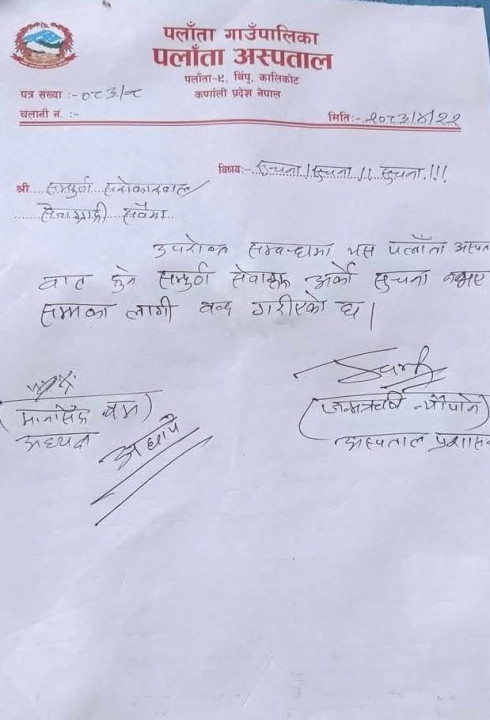 पलाँता गाउँपालिका
पलाँता अस्पताल
पलाँता-९, थिंपु, कालिकोट
कर्णाली प्रदेश नेपाल
पत्र संख्या :- ०८३/०८
चलानी न. :-
मिति:- २०८३/४/२२
विषय:- सुचना ! सुचना !! सुचना !!!
श्री सम्पुर्ण सरोकारवाला
सेवाग्राही सवैमा
उपरोक्त सम्वन्धमा यस पलाँता अस्पता
वाट हुने सम्पुर्ण सेवाहरू अर्को सुचना नभए
सम्मका लागी वन्द गरीएको छ ।
(मानसिंह वम)
अध्यक्ष
(जन्मऋषि न्यौपाने)
अस्पताल प्रशास